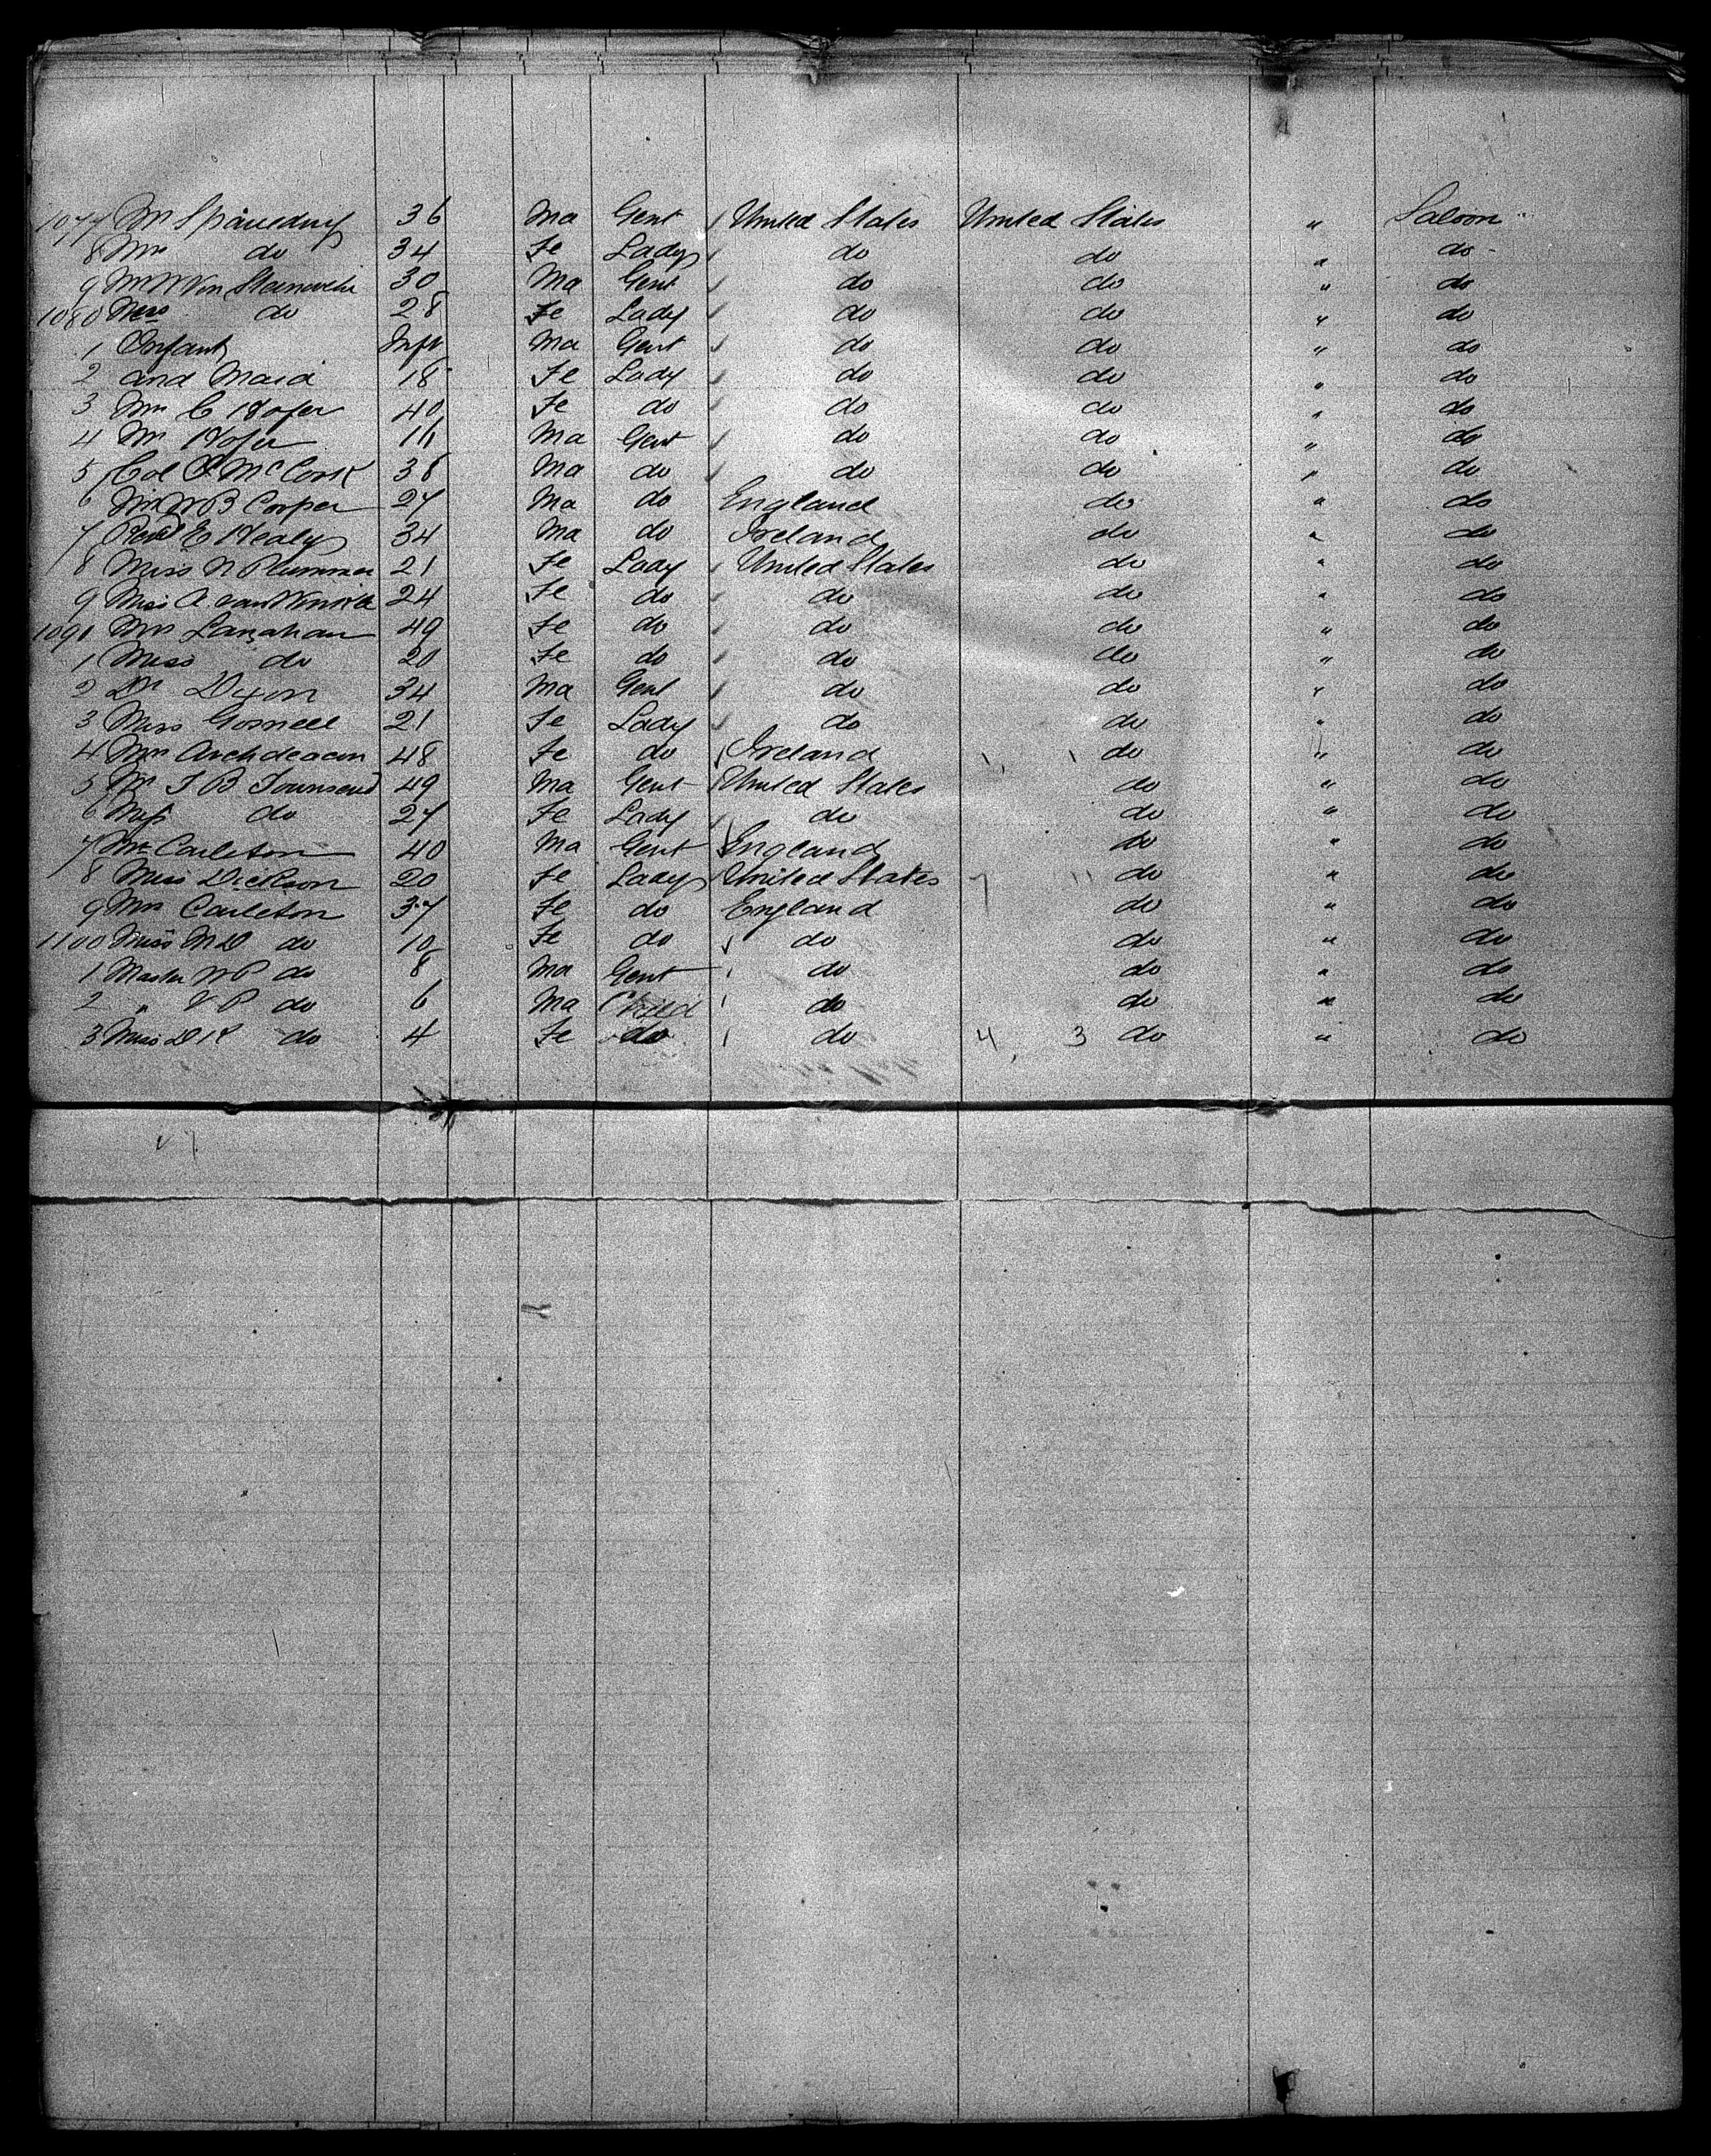 1077 Mr Spauldury 36 Ma Gent United States United States " Saloon
8 Mrs do 34 Fe Lady do do " do
9 Mr W Von Steinwehr 30 Ma Gent do do " do
1080 Mrs do 28 Fe Lady do do " do
1 Infant Inft Ma Gent do do " do
2 and Maid 18 Fe Lady do do " do
3 Mrs C Hofer 40 Fe do do do " do
4 Mr Hofer 16 Ma Gent do do " do
5 Col McCook 38 Ma do do do " do
6 Mr W B Cooper 27 Ma do England do " do
7 Revd E Healy 34 Ma do Ireland do " do
8 Miss N Plummer 21 Fe Lady United States do " do
9 Miss A. van Winkle 24 Fe do do do " do
1090 Mrs Lanahan 49 Fe do do do " do
1 Miss do 20 Fe do do do " do
2 Dr Dixon 34 Ma Gent do do " do
3 Miss Gosnell 21 Fe Lady do do " do
4 Mrs Archdeacon 48 Fe do Ireland do " do
5 Mr T B Townsend 49 Ma Gent United States do " do
6 Miss do 27 Fe Lady do do " do
7 Mr Carleton 40 Ma Gent England do " do
8 Miss Dickson 20 Fe Lady United States do " do
9 Mrs Carleton 37 Fe do England do " do
1100 Miss M D do 10 Fe do do do " do
1 Master W P do 8 Ma Gent do do " do
2 " V P do 6 Ma Child do do " do
3 Miss D K do 4 Fe do do 4, 3 do " do